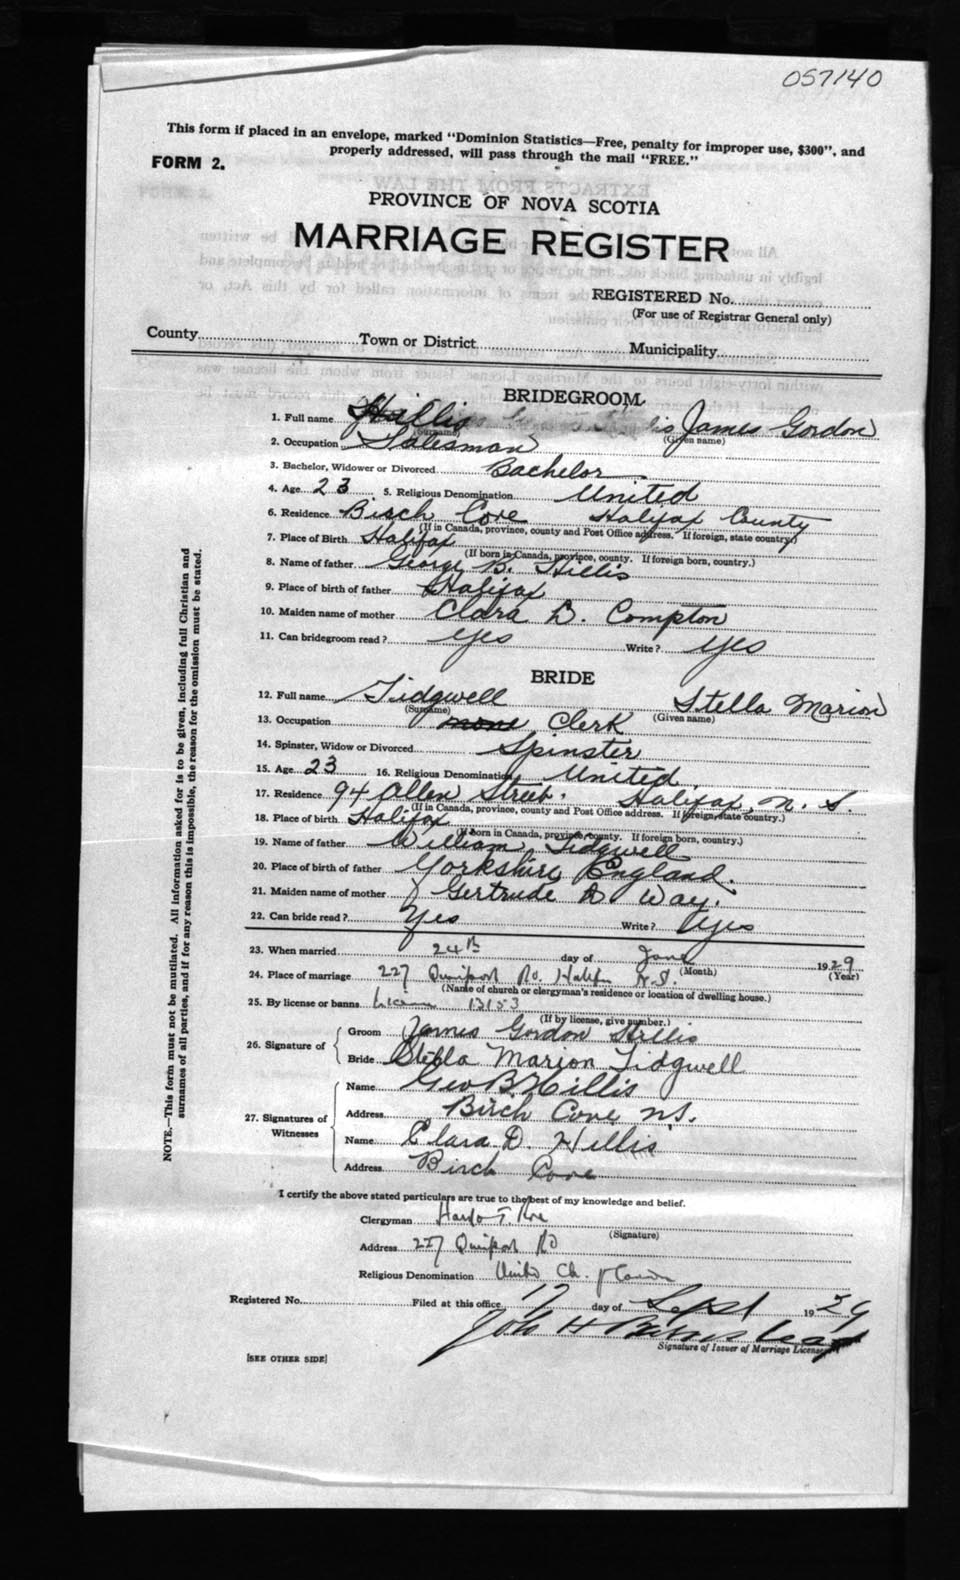 057140
This form if placed in an envelope, marked "Dominion Statistics—Free, penalty for improper use, $300", and
properly addressed, will pass through the mail "FREE."
FORM 2.
PROVINCE OF NOVA SCOTIA
MARRIAGE REGISTER
REGISTERED No.
(For use of Registrar General only)
County Town or District Municipality
BRIDEGROOM
1. Full name Hillis James Gordon
(Surname) (Given name)
2. Occupation Salesman
3. Bachelor, Widower or Divorced Bachelor
4. Age 23 5. Religious Denomination United
6. Residence Birch Cove Halifax County
(If in Canada, province, county and Post Office address. If foreign, state country.)
7. Place of Birth Halifax
(If born in Canada, province, county. If foreign born, country.)
8. Name of father George B. Hillis
9. Place of birth of father Halifax
10. Maiden name of mother Clara D. Compton
11. Can bridegroom read? yes Write? yes
BRIDE
12. Full name Tidgwell Stella Marion
(Surname) (Given name)
13. Occupation none Clerk
14. Spinster, Widow or Divorced Spinster
15. Age 23 16. Religious Denomination United
17. Residence 94 Allen Street. Halifax, N. S.
(If in Canada, province, county and Post Office address. If foreign, state country.)
18. Place of birth Halifax
(If born in Canada, province, county. If foreign born, country.)
19. Name of father William Tidgwell
20. Place of birth of father Yorkshire England.
21. Maiden name of mother Gertrude A Way.
22. Can bride read? Yes Write? Yes
23. When married 24th day of June 1929
(Month) (Year)
24. Place of marriage 227 Quinpool Rd. Halifax N.S.
(Name of church or clergyman's residence or location of dwelling house.)
25. By license or banns License 13153
(If by license, give number.)
26. Signature of Groom James Gordon Hillis
Bride Stella Marion Tidgwell
27. Signatures of Witnesses
Name Geo B Hillis
Address Birch Cove N.S.
Name Clara D. Hillis
Address Birch Cove
I certify the above stated particulars are true to the best of my knowledge and belief.
Clergyman
(Signature)
Address 227 Quinpool Rd
Religious Denomination United Ch. of Canada
Registered No. Filed at this office 17 day of Sept 1929
Signature of Issuer of Marriage Licenses
[SEE OTHER SIDE]
NOTE.—This form must not be mutilated. All information asked for is to be given, including full Christian and
surnames of all parties, and if for any reason this is impossible, the reason for the omission must be stated.